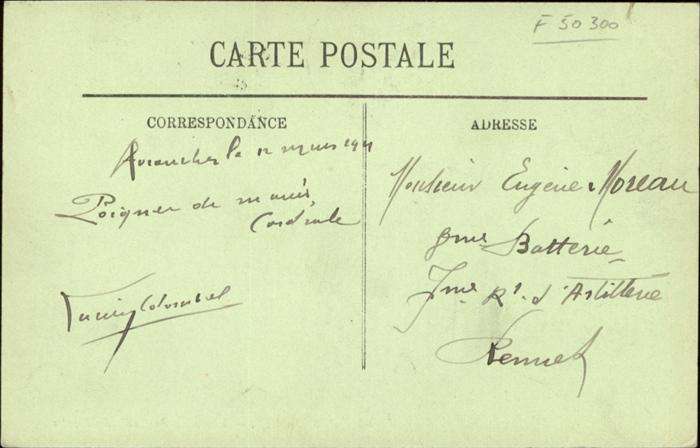 F 50 300
CARTE POSTALE
CORRESPONDANCE
Avranches le 12 mars 1911
Poignée de mains
Cordiale
Colombel
ADRESSE
Monsieur Eugène Moreau
8me Batterie
7me Rt. d'Artillerie
Rennes